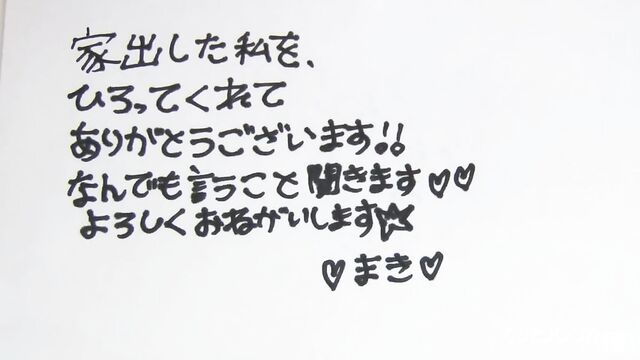 家出した私を、
ひろってくれて
ありがとうございます!!
なんでも言うこと聞きます♡♡
よろしくおねがいします☆
♡まき♡